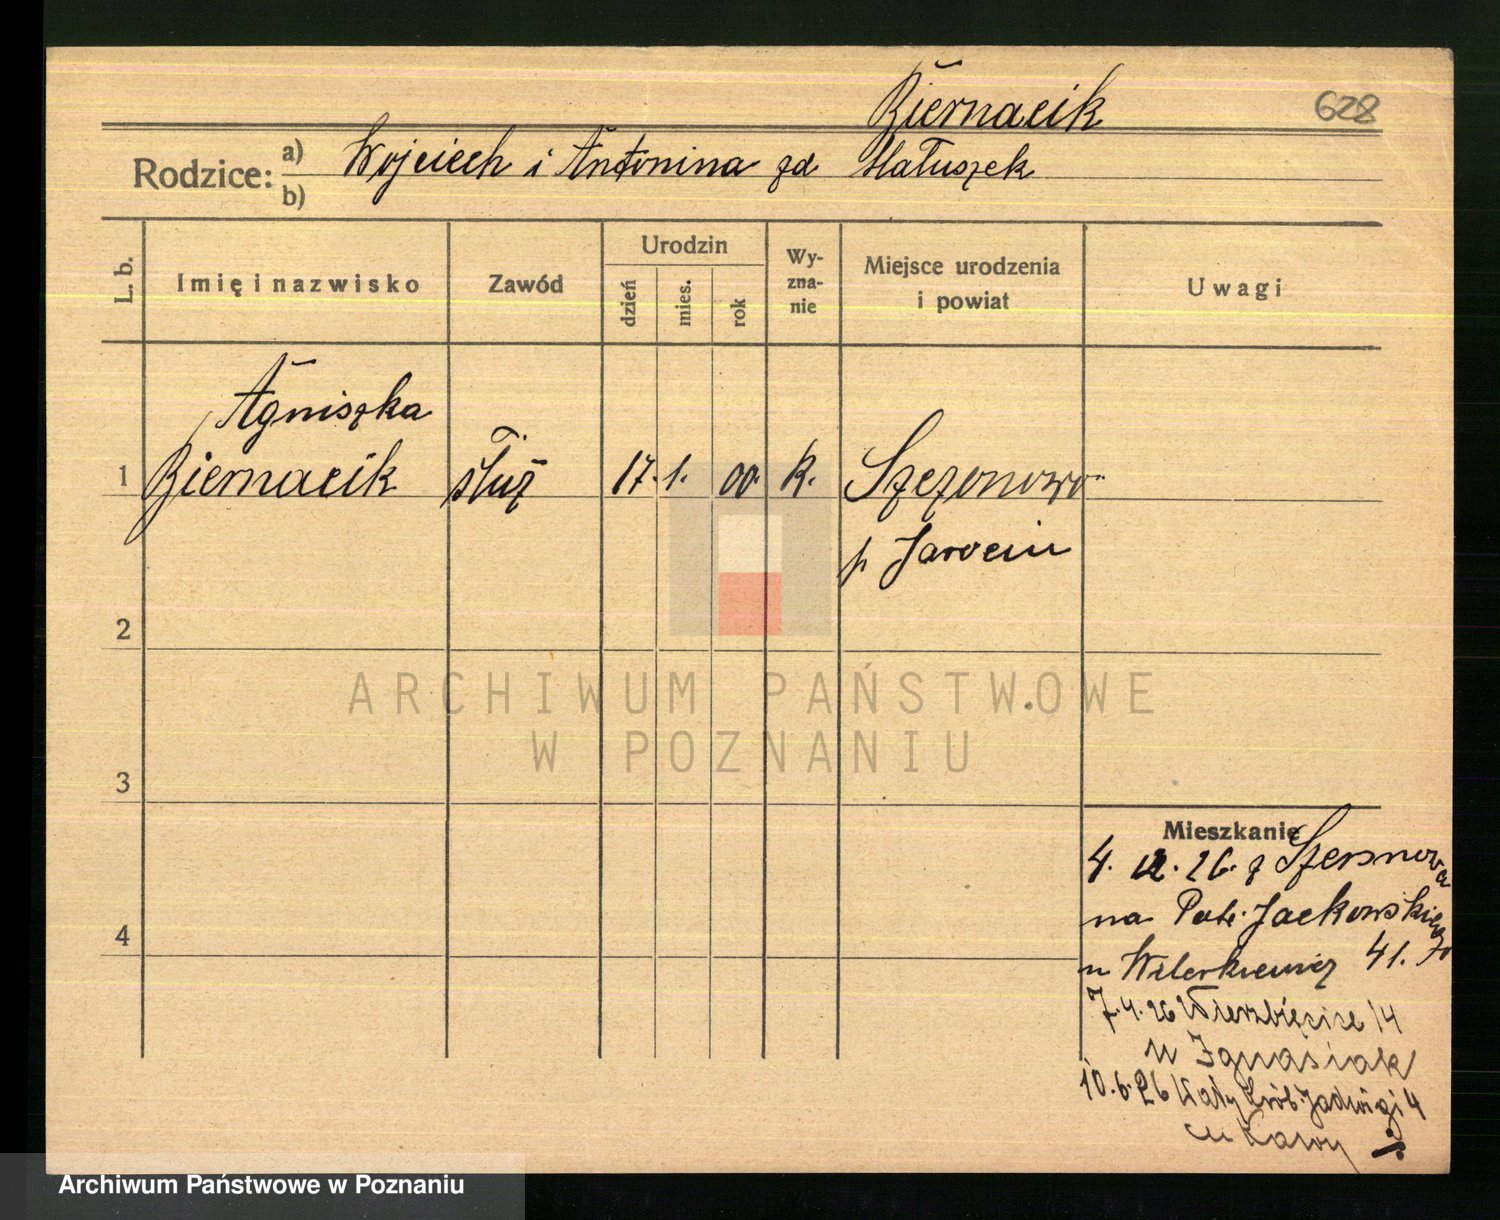 Biernacik
628
Rodzice: a) Wojciech i Antonina zd Matuszek
b)
L. b.
Imię i nazwisko
Zawód
Urodzin
dzień
mies.
rok
Wy-
zna-
nie
Miejsce urodzenia
i powiat
Uwagi
Agniszka
1 Biernacik służ 17. 1. 00 k. Szczonowo
p. Jarocin
2
3
4
ARCHIWUM PAŃSTWOWE
W POZNANIU
Mieszkanie
4. 26. z
na Jackowskiego
u 41.
7.4.26 Wierzbięcice 14
u Ignasiak
10.6.26 Jadwigi 4
Archiwum Państwowe w Poznaniu